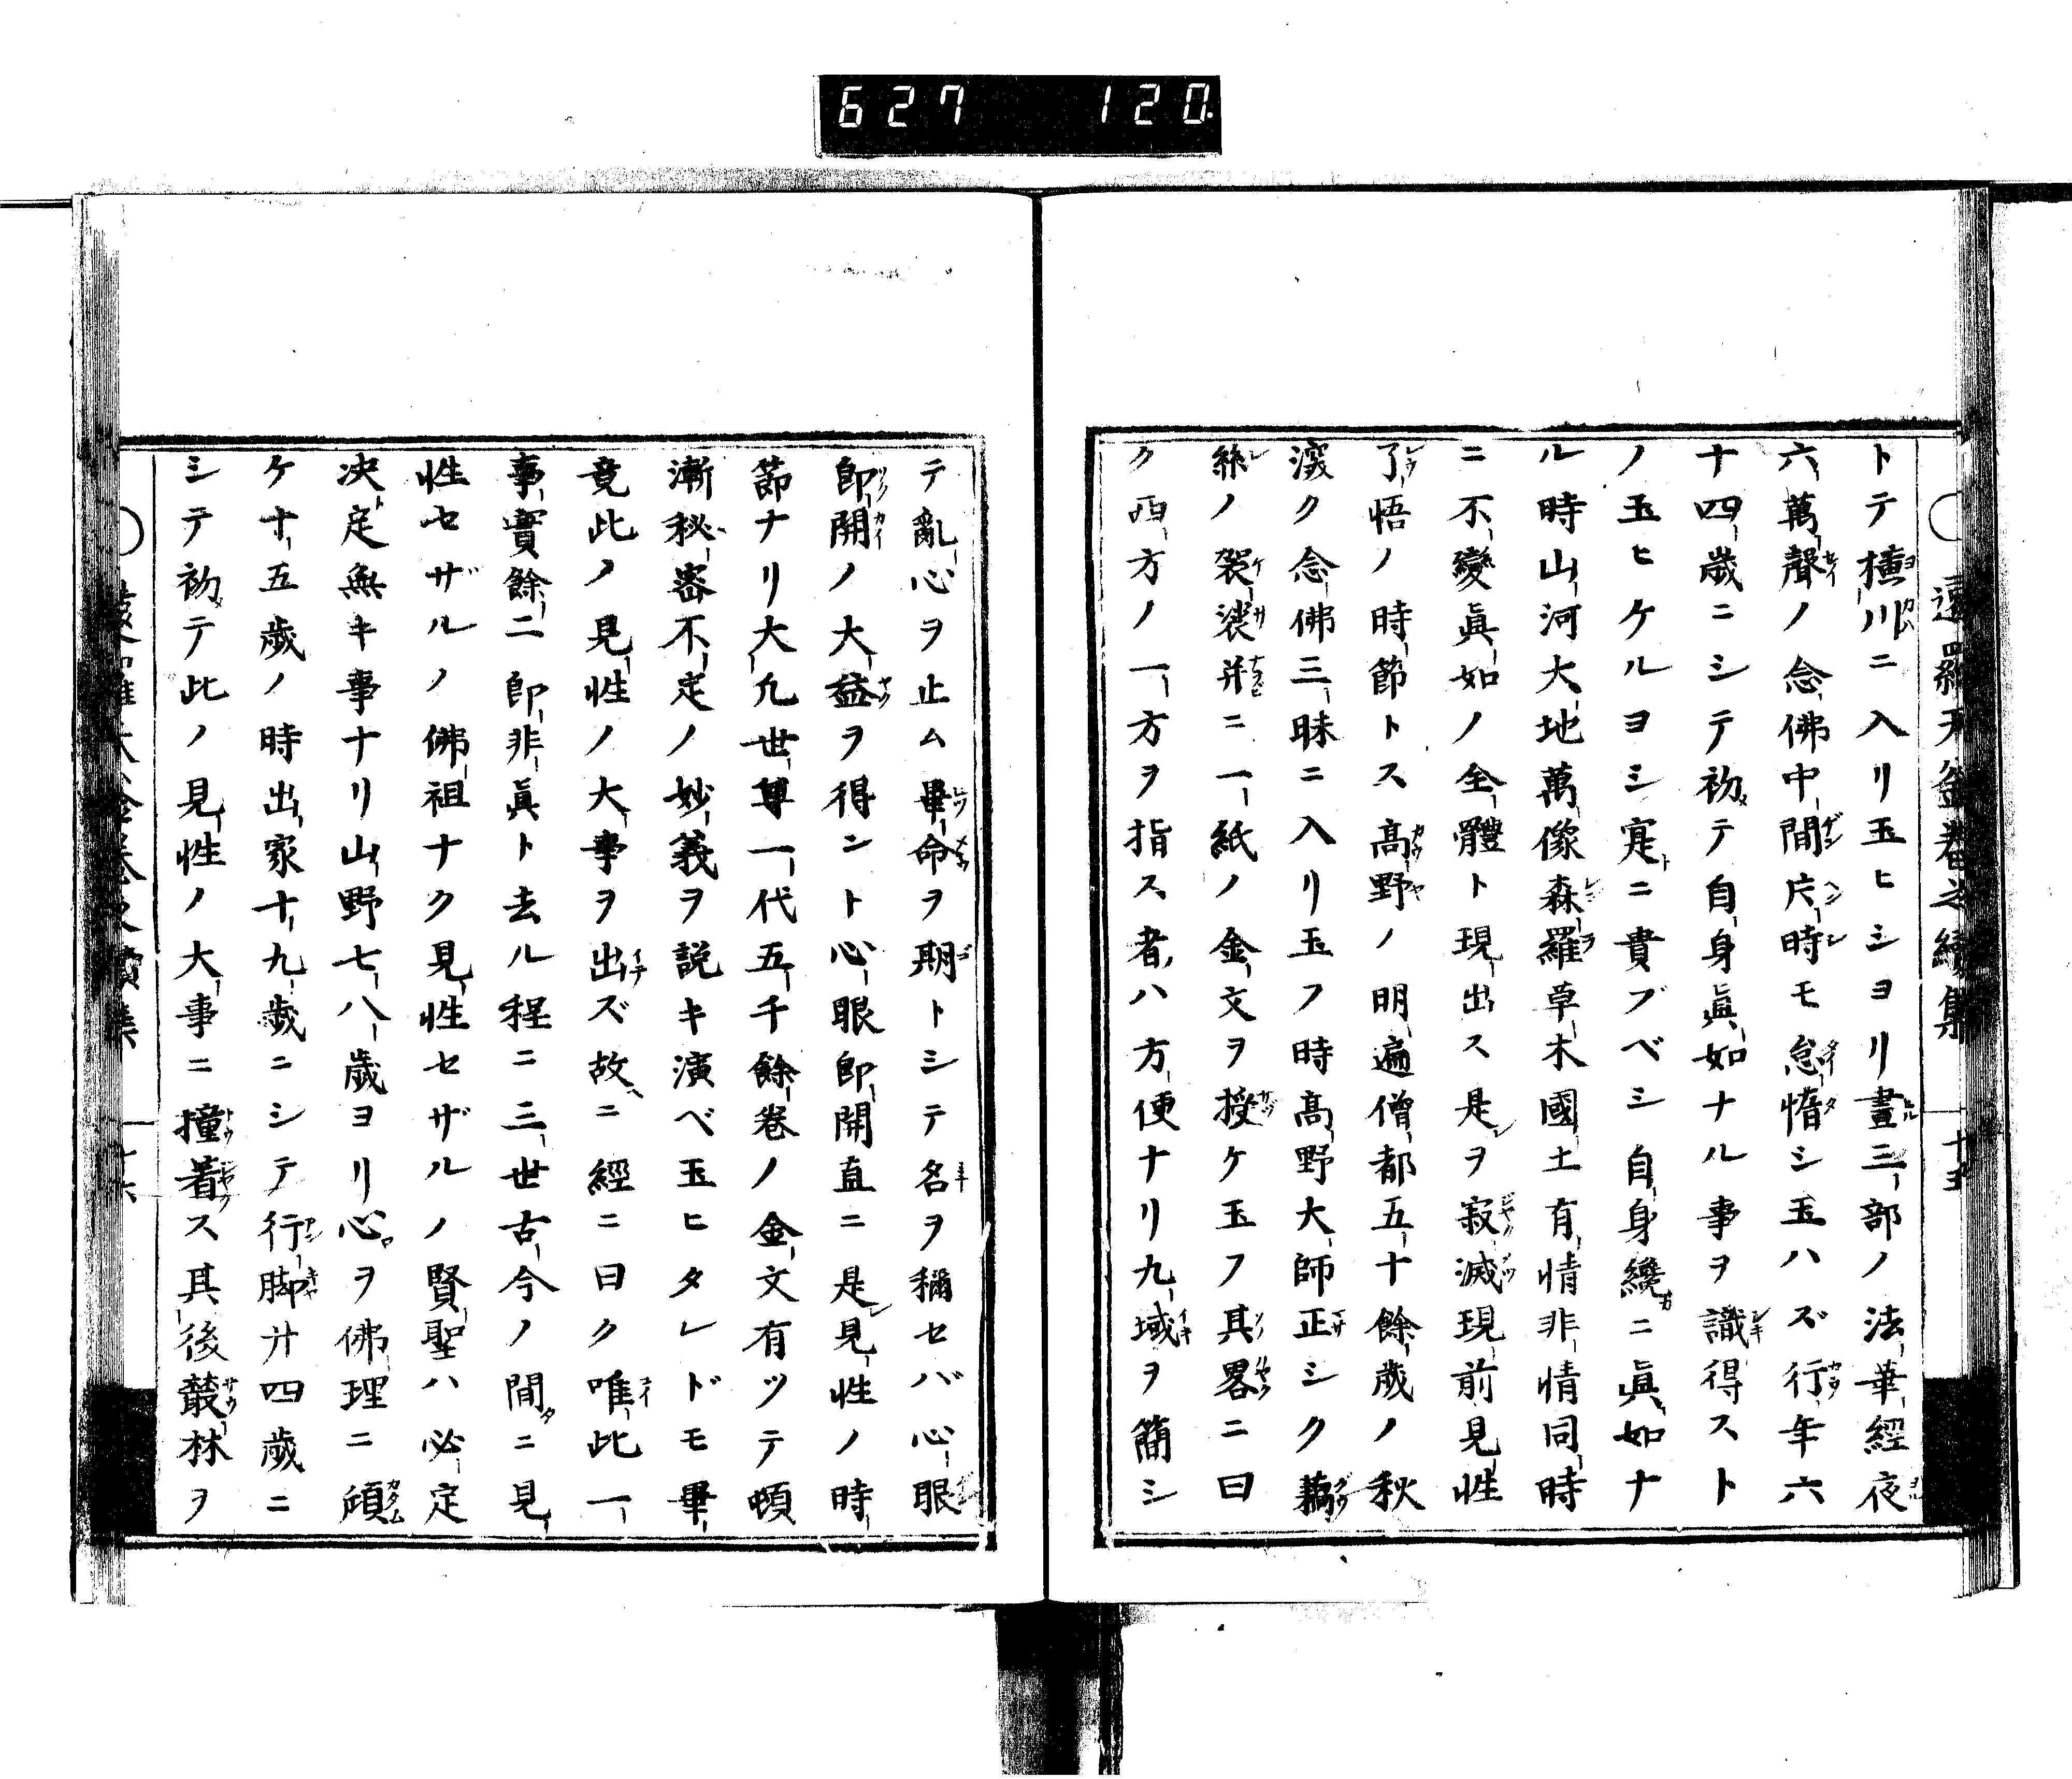 627 120
トテ横川ニ入リ玉ヒシヨリ晝三部ノ法華經夜
六萬聲ノ念佛中間片時モ怠惰シ玉ハズ行年六
十四歳ニシテ初テ自身眞如ナル事ヲ識得スト
ノ玉ヒケルヨシ寔ニ貴ブベシ自身纔ニ眞如ナ
ル時山河大地萬像森羅草木國土有情非情同時
ニ不變眞如ノ全體ト現出ス是ヲ寂滅現前見性
了悟ノ時節トス高野ノ明遍僧都五十餘歳ノ秋
深ク念佛三昧ニ入リ玉フ時高野大師正シク藕
絲ノ袈裟并ニ一紙ノ金文ヲ授ケ玉フ其畧ニ曰
ク西方ノ一方ヲ指ス者ハ方便ナリ九域ヲ簡シ
テ亂心ヲ止ム畢命ヲ期トシテ名ヲ稱セバ心眼
即開ノ大益ヲ得ント心眼即開直ニ是見性ノ時
節ナリ大凡世尊一代五千餘巻ノ金文有ツテ頓
漸秘密不定ノ妙義ヲ説キ演ベ玉ヒタレドモ畢
竟此ノ見性ノ大事ヲ出ズ故ニ經ニ曰ク唯此一
事實餘二即非眞ト去ル程ニ三世古今ノ間ニ見
性セザルノ佛祖ナク見性セザルノ賢聖ハ必定
决定無キ事ナリ山野七八歳ヨリ心ヲ佛理ニ傾
ケ十五歳ノ時出家十九歳ニシテ行脚廾四歳ニ
シテ初テ此ノ見性ノ大事ニ撞着ス其後叢林ヲ